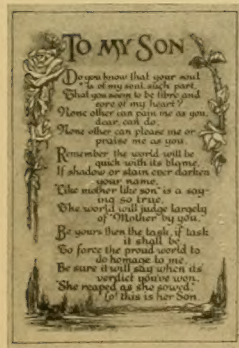 TO MY SON
Do you know that your soul
is of my soul such part,
That you seem to be fibre and
core of my heart?
None other can pain me as you,
dear, can do,
None other can please me or
praise me as you.
Remember the world will be
quick with its blame,
If shadow or stain ever darken
your name.
"Like mother like son" is a say-
ing so true,
The world will judge largely
of "Mother" by you.
Be yours then the task, if task
it shall be,
To force the proud world to
do homage to me.
Be sure it will say when its
verdict you've won,
"She reaped as she sowed,
Lo! this is her Son